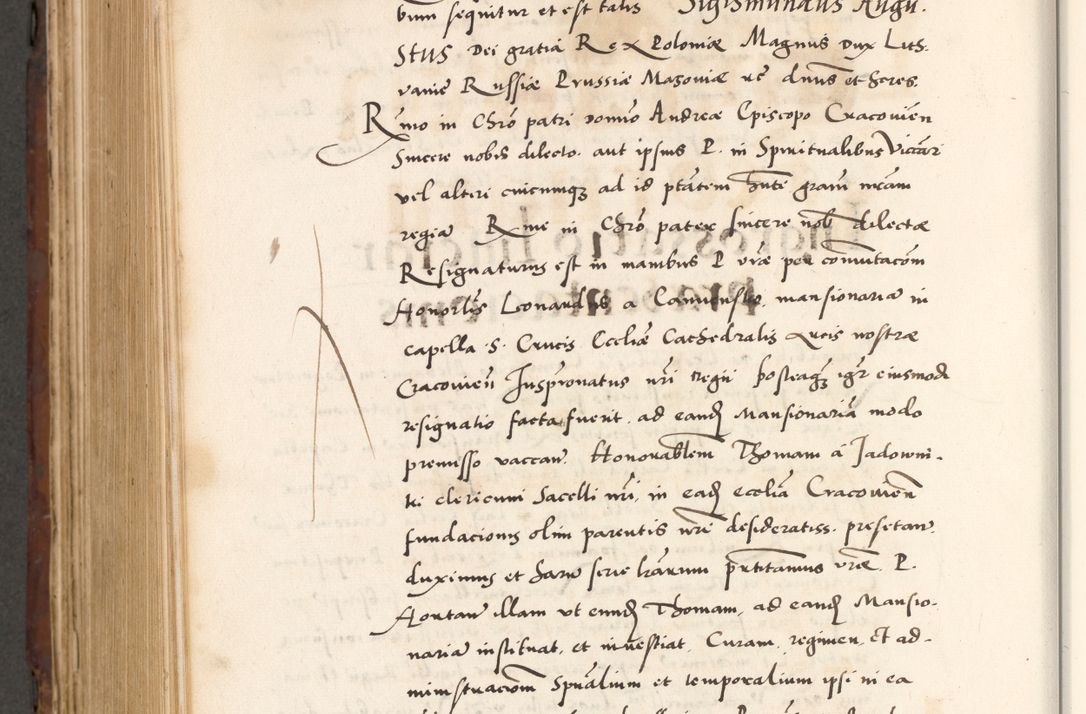 bum sequitur et est talis Sigismundus Augu.
stus Dei gratia Rex Poloniæ Magnus Dux Lits.
vanie Russiæ Prussiæ Mazoviæ etc dnus et heres.
Rmo in Chro patri domino Andreæ Episcopo Cracovien
Sincere nobis dilecto. aut ipsius P. in Spiritualibus Vicari
vel alteri cuicumqꝫ ad id ptatem hnti gram nram
regia Rme in Chro pater sincere nob dilecte
Resignaturus est in manibus P vræ per comutacom
Honorlis Leonardus a mansionaria in
capella S. Crucis Eccliæ Cathedralis Arcis nostræ
Cracovien Juspronatus nri regii posteaqꝫ igr eiusmodi
resignatio facta fuerit. ad eandꝫ Mansionariã modo
premisso vaccan. Honorablem Thomam á Jadowni-
ki clericum Sacelli nri, in eadꝫ ecclia Cracovien
fundacionis olim parentis nri desideratiss. presetan
duximus et harum serie lrarum prntamus vræ. P.
Hortan illam ut eundꝫ Thomam, ad eandꝫ Mansio-
naria instituat, et investiat, Curam, regimen, et ad-
ministracom Spualium et temporalium ipsi in ea